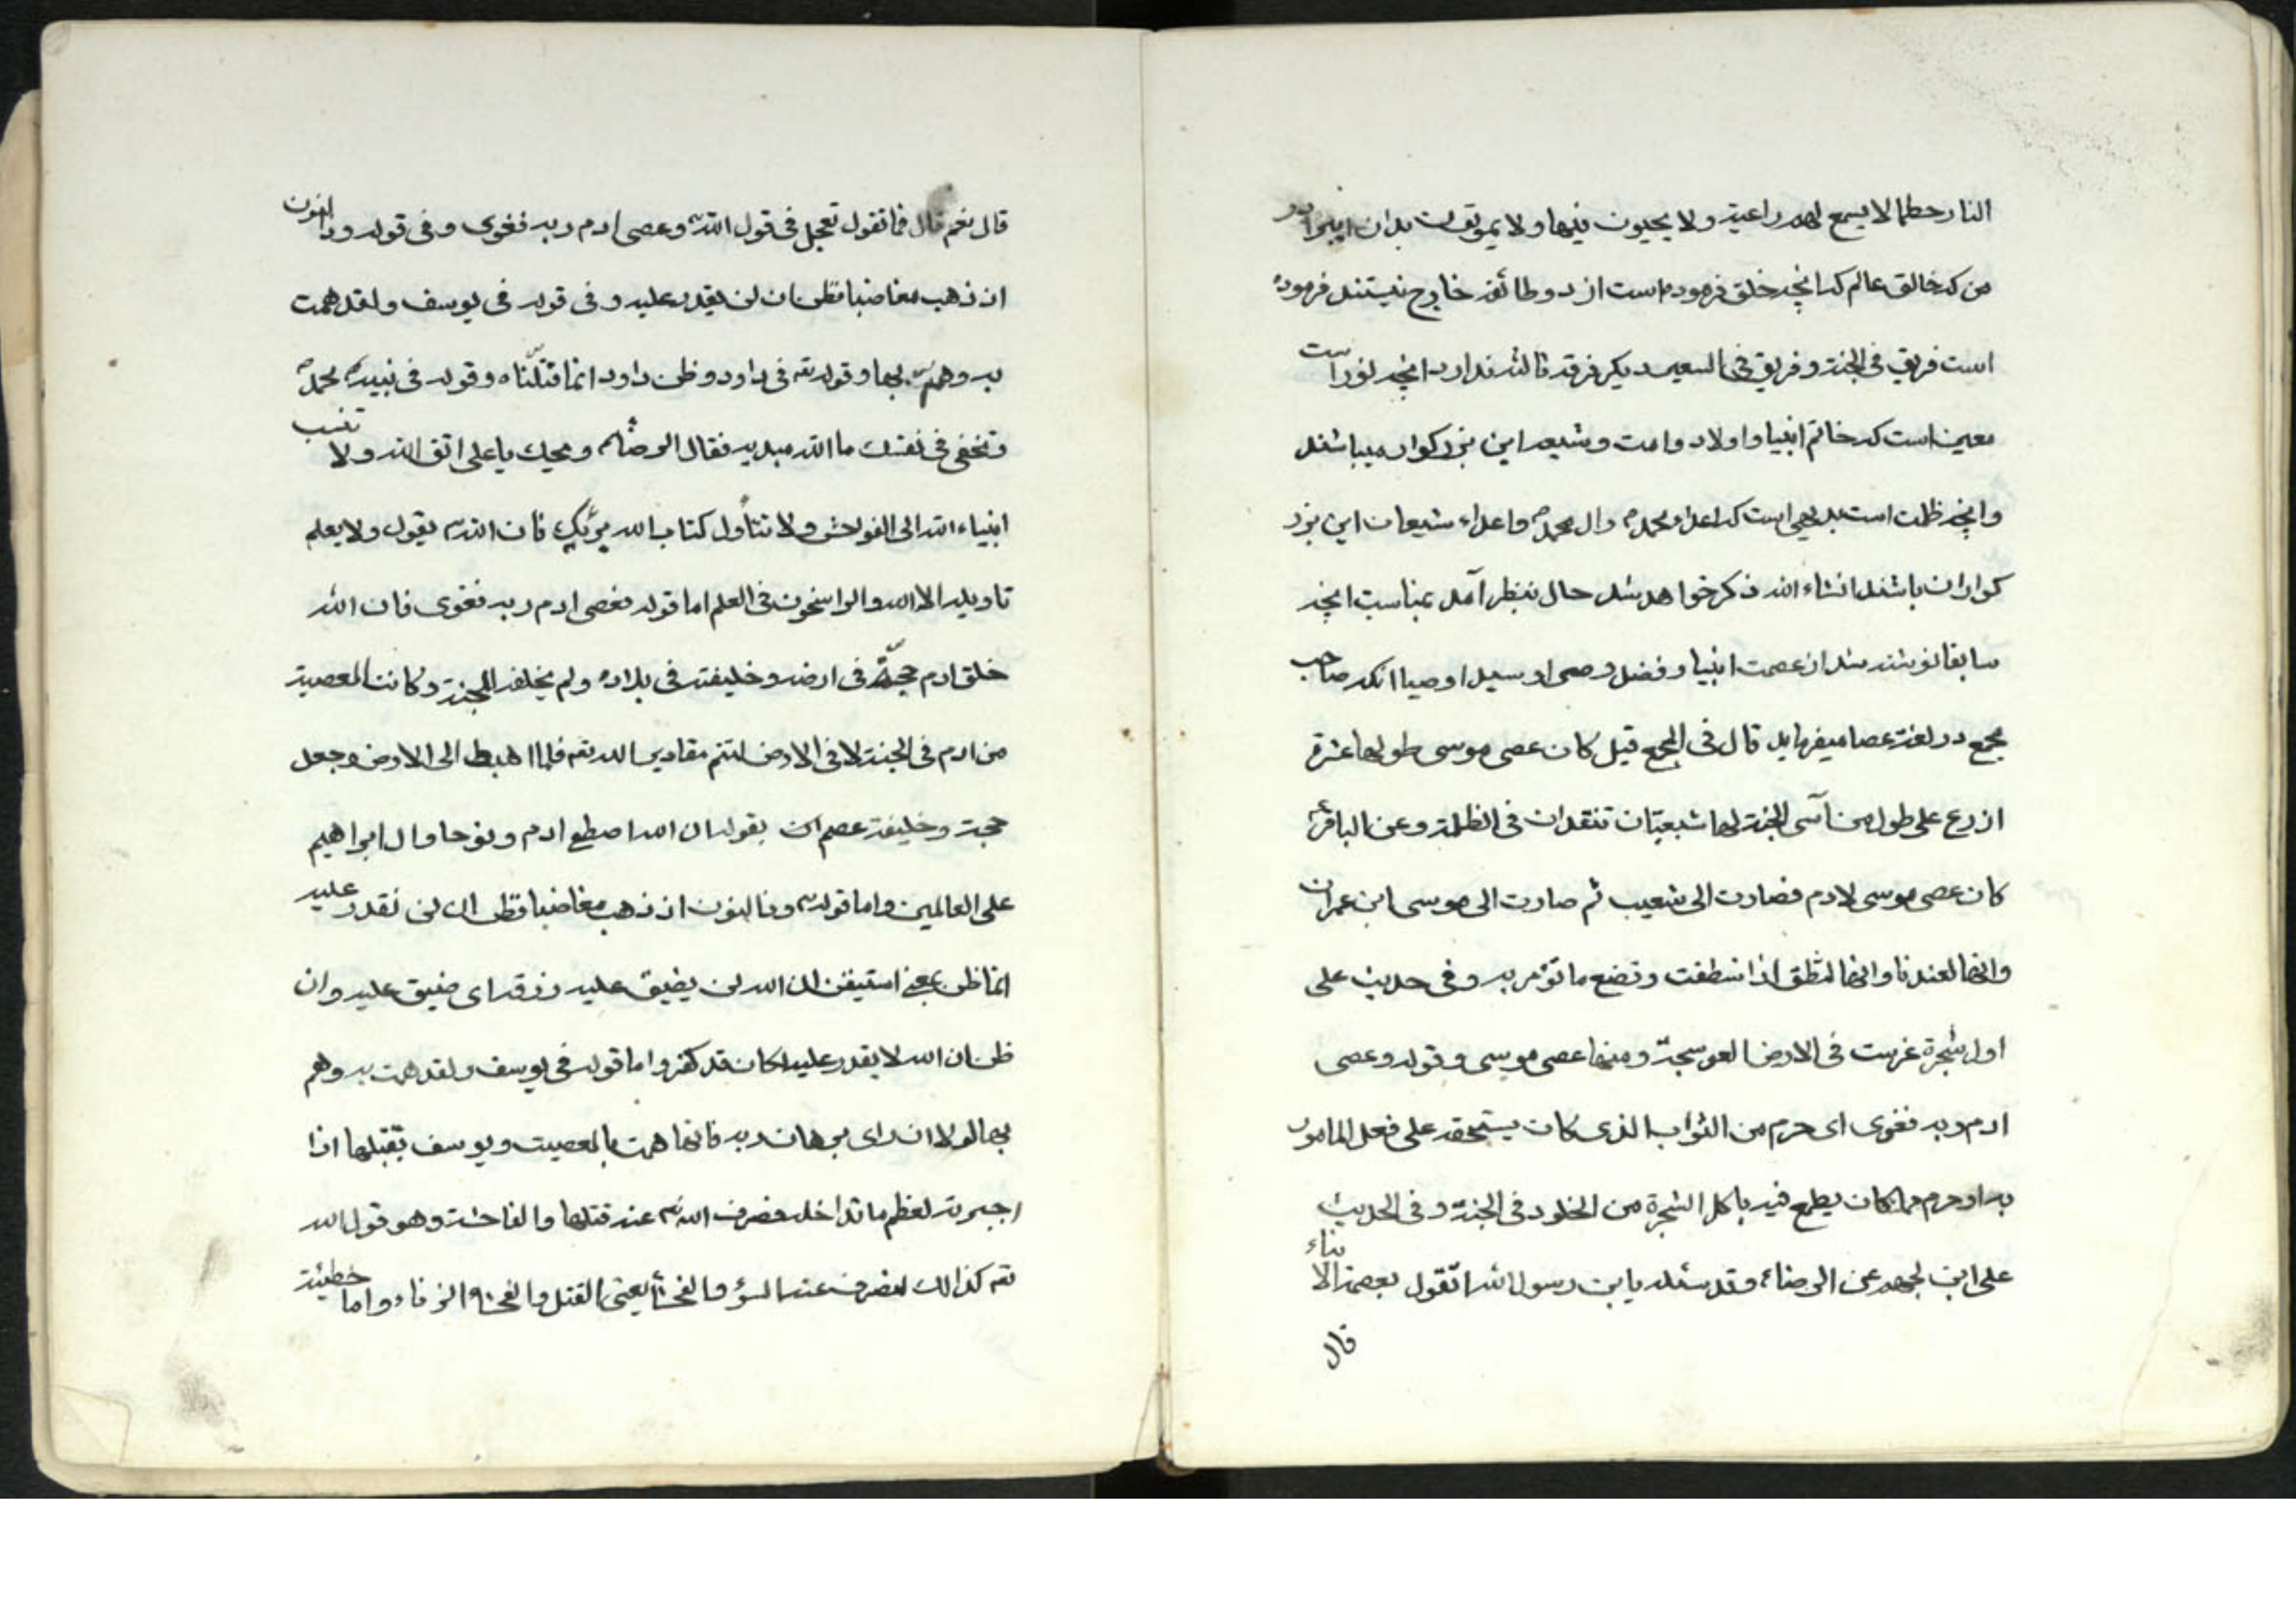 النار حطما لا يسمع لهم راعية ولا يحيون فيها ولا يموتون بدان ايبرادر
من که خالق عالم که آنچه خلق فرموده است از دو طائفه خارج نیستند فرموده
است فریق فی الجنة و فریق فی السعیر دیگر فرقه ثالثه ندارد آنچه نور است
معین است که خاتم انبیا و اولاد و امت و شیعه این بزرکوار میباشند
و آنچه ظلمت است بدیهی است که اعداء محمد و ال محمد و اعداء شیعیان این بزر
کواران باشند انشاء الله ذکر خواهد شد حال بنظر آمد بمناسبت آنچه
سابقا نوشته شد از عصمت انبیا و فضل وصی او سید اوصیا انکه صاحب
مجمع در لغة عصا میفرماید قال فی المجمع قیل کان عصی موسی طولها عشرة
اذرع علی طول من آسی الجنة لها شعبتان تتقدان فی الظلمة و عن الباقر
کان عصی موسی لادم فصارت الی شعیب ثم صارت الی موسی ابن عمران
وانها لعندنا وانها لتنطق اذا استنطقت وتصنع ما تؤمر به و فی حدیث علی
اول شجرة غرست فی الارض العوسجة ومنها عصی موسی و قوله وعصی
ادم ربه فغوی ای حرم من الثواب الذی کان یستحقه علی فعل المامور
به او حرم مما کان یطمع فیه باکل الشجرة من الخلود فی الجنة و فی الحدیث
علی ابن الجهم عن الرضا و قد سئله یابن رسول الله اتقول بعصمة الانبیاء
قال
قال نعم قال فما تقول تعجل فی قول الله وعصی ادم ربه فغوی و فی قوله وذا النون
اذ ذهب مغاضبا فظن ان لن یقدر علیه و فی قوله فی یوسف ولقد همت
به وهم بها و قوله تع فی داود وظن داود انما فتناه و قوله فی نبیه محمد
وتخفی فی نفسک ما الله مبدیه فقال الرضا ویحک یا علی اتق الله ولا تنسب
انبیاء الله الی الفواحش ولا تتأول کتاب الله برأیک فان الله یقول ولا یعلم
تاویله الا الله والراسخون فی العلم اما قوله فعصی ادم ربه فغوی فان الله
خلق ادم حجة فی ارضه وخلیفته فی بلاده ولم یخلقه للجنة وکانت المعصیة
من ادم فی الجنة لا فی الارض لتتم مقادیر الله تع فلما اهبط الی الارض وجعل
حجة وخلیفة عصم بقوله ان الله اصطفی ادم ونوحا وال ابراهیم
علی العالمین واما قوله وذا النون اذ ذهب مغاضبا فظن ان لن نقدر علیه
انما ظن بمعنی استیقن ان الله لن یضیق علیه رزقه ای ضیق علیه وان
ظن ان الله لا یقدر علیه لکان قد کفر واما قوله فی یوسف ولقد همت به وهم
بها لولا ان رای برهان ربه فانها همت بالمعصیت ویوسف بقتلها اذا
اجبرته لعظم ما تداخله فصرف الله عنه قتلها والفاحشة وهو قول الله
تع کذالک لنصرف عنه السوء والفحشآ یعنی القتل والفحشاء الزناء واما خطیئة